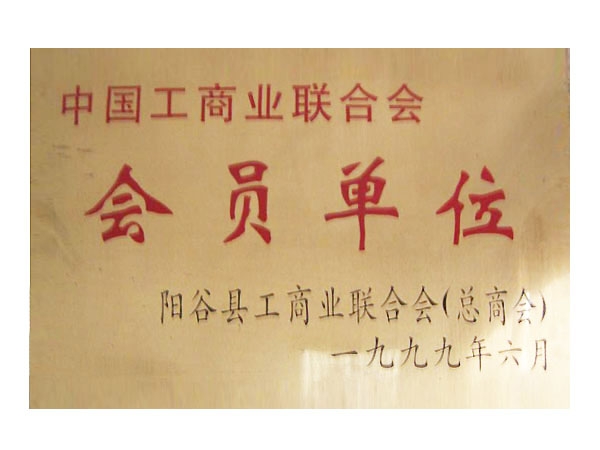 中国工商业联合会
会员单位
阳谷县工商业联合会(总商会)
一九九九年六月